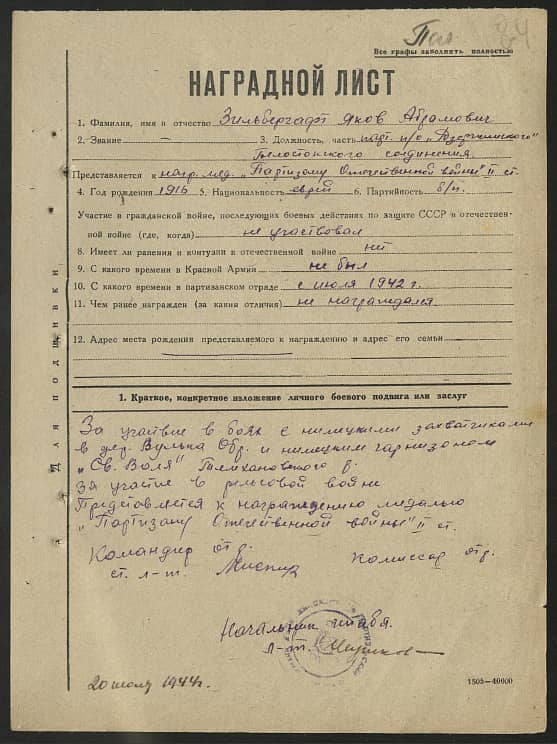 Все графы заполнять полностью
НАГРАДНОЙ ЛИСТ
1. Фамилия, имя и отчество Зильбергафт Яков Абрамович
2. Звание — 3. Должность, часть парт. п/о „Дзержинского"
Белостокского соединения
Представляется к нагр. мед. „Партизану Отечественной войны" II ст.
4. Год рождения 1916 5. Национальность еврей 6. Партийность б/п.
Участие в гражданской войне, последующих боевых действиях по защите СССР и отечествен-
ной войне (где, когда) не участвовал
8. Имеет ли ранения и контузии в отечественной войне нет
9. С какого времени в Красной Армии не был
10. С какого времени в партизанском отряде с июля 1942 г.
11. Чем ранее награжден (за какия отличия) не награждался
12. Адрес места рождения представляемого к награждению и адрес его семьи
Для подшивки
1. Краткое, конкретное изложение личного боевого подвига или заслуг
За участие в боях с немецкими захватчиками
в дер. Вулька Обр. и немецким гарнизоном
„Св. Воля" Телехановского р.
За участие в рельсовой войне
Представляется к награждению медалью
„Партизану Отечественной войны" II ст.
Командир от.
Комиссар отр.
ст. л-т.
Начальник штаба.
л-т.
20 июлу 1944 г.
1503—40000